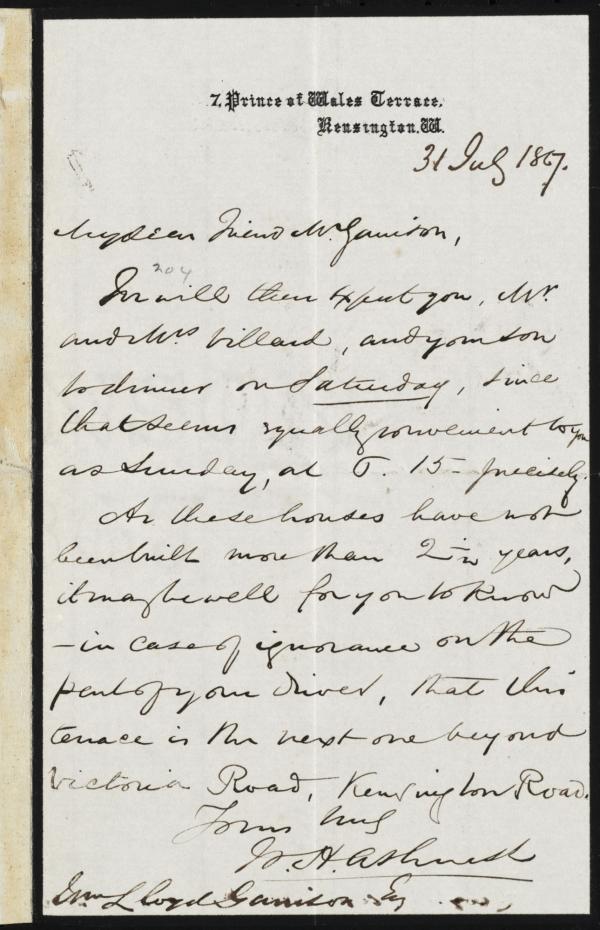 7, Prince of Wales Terrace,
Kensington. W.
31 July 1867.
My dear Friend Mr Garrison,
204
We will then expect you, Mr.
and Mrs Villard, and your son
to dinner on Saturday, since
that seems equally convenient to you
as Sunday, at 5. 15 - precisely.
As these houses have not
been built more than 2 or 3 years,
it may be well for you to know
- in case of ignorance on the
part of your driver, that this
terrace is the next one beyond
Victoria Road, Kensington Road.
Yours truly
W. H. Ashurst
Wm Lloyd Garrison Esq